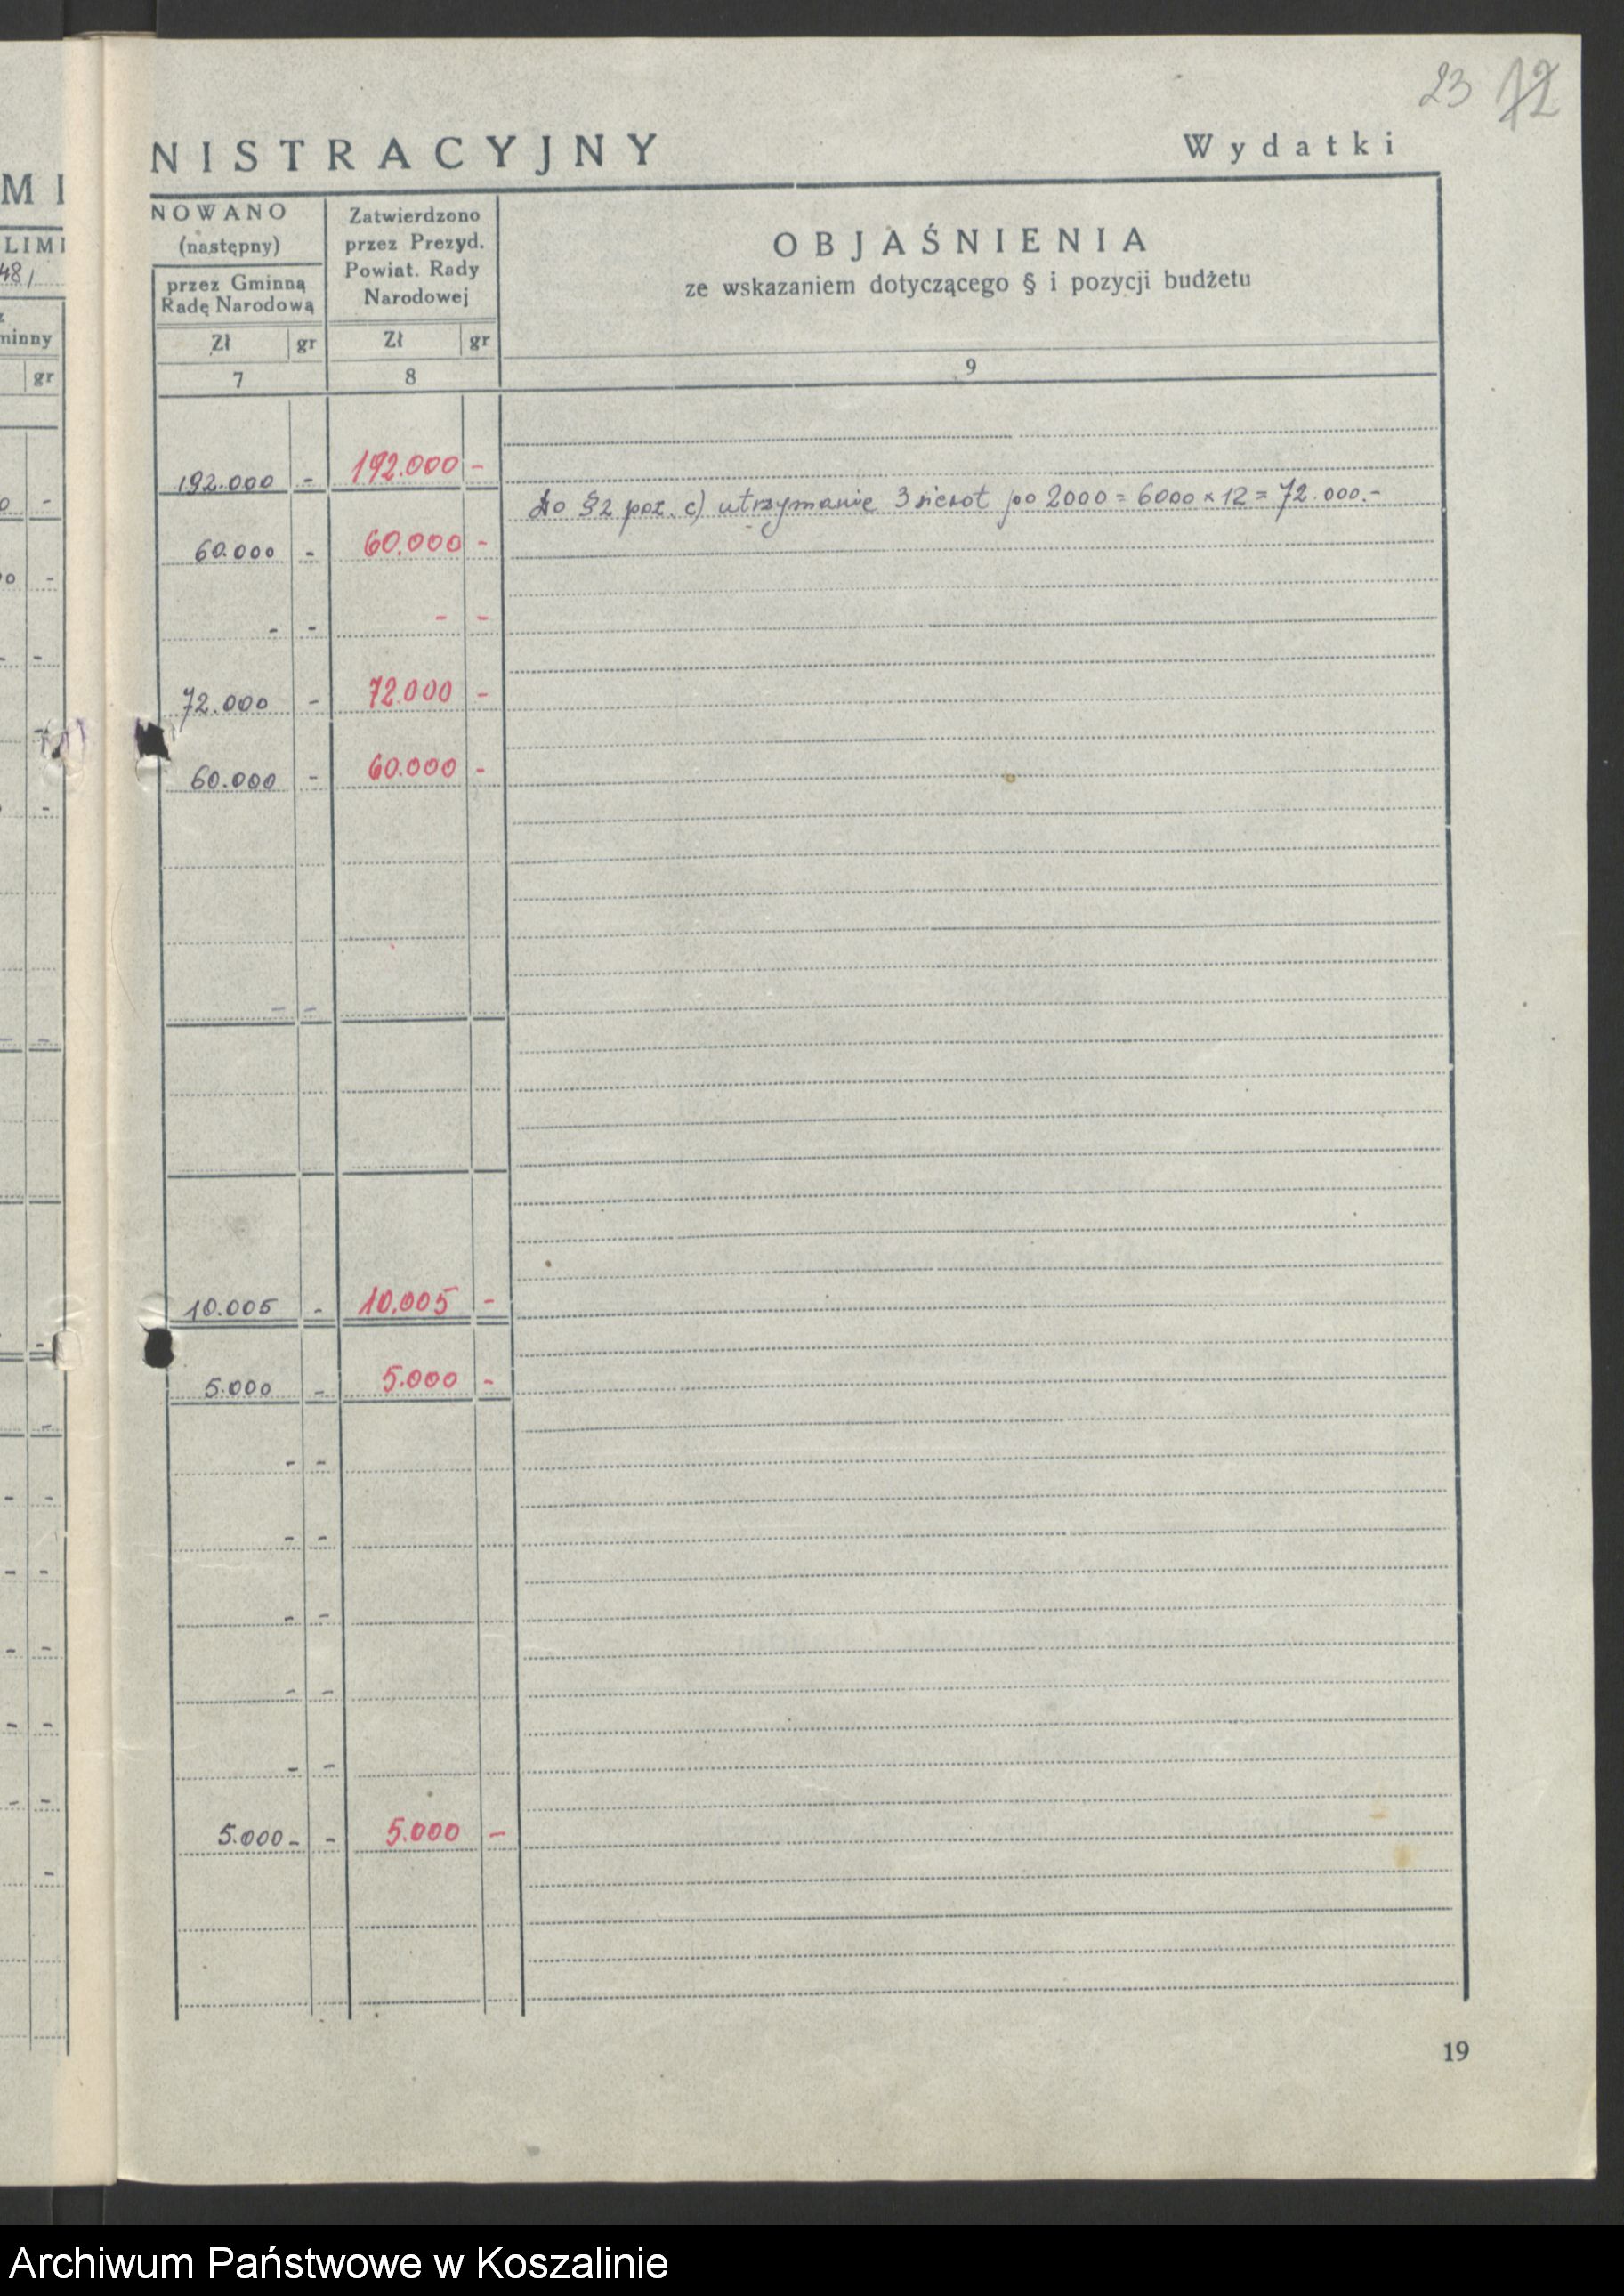 23 12
NISTRACYJNY
Wydatki
MI
LIMI
48/
minny
gr
NOWANO
(następny)
przez Gminną
Radę Narodową
Zł gr
7
Zatwierdzono
przez Prezyd.
Powiat. Rady
Narodowej
Zł gr
8
OBJAŚNIENIA
ze wskazaniem dotyczącego § i pozycji budżetu
9
192.000 - 192.000 -
do §2 poz. c) utrzymanie 3 sierot po 2000 = 6000 x 12 = 72.000.-
60.000 - 60.000 -
- - - -
72.000 - 72.000 -
60.000 - 60.000 -
- -
10.005 - 10.005 -
5.000 - 5.000 -
- -
- -
- -
- -
- -
5.000- - 5.000 -
19
Archiwum Państwowe w Koszalinie